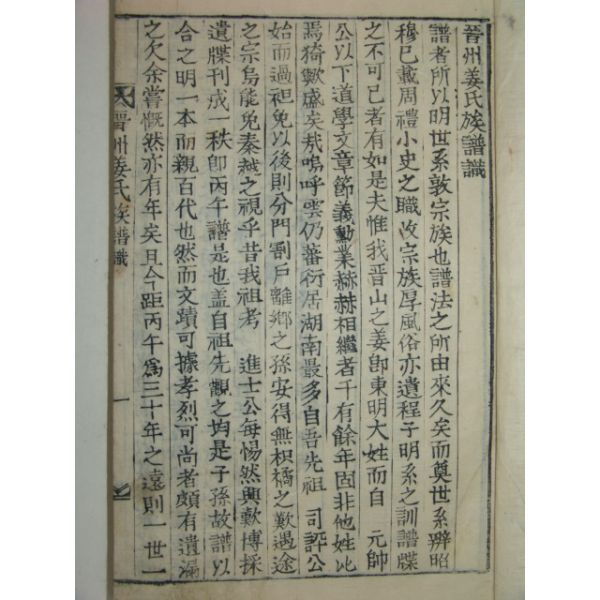 晉州姜氏族譜識
譜者所以明世系敦宗族也譜法之所由來久矣而奠世系辨昭
穆已載周禮小史之職收宗族厚風俗亦遺程子明系之訓譜牒
之不可已者有如是夫惟我晋山之姜卽東明大姓而自 元帥
公以下道學文章節義勳業赫赫相繼者千有餘年固非他姓比
焉猗歟盛矣哉嗚呼雲仍蕃衍居湖南最多自吾先祖 司評公
始而過袒免以後則分門割戶離鄉之孫安得無枳橘之歎遇途
之宗烏能免秦越之視乎昔我祖考 進士公每惕然興歎博採
遺牒刊成一秩卽丙午譜是也盖自祖先觀之均是子孫故譜以
合之明一本而親百代也然而文蹟可據孝烈可尚者頗有遺漏
之欠余嘗慨然亦有年矣且今距丙午爲三十年之遠則一世一
晋州姜氏族譜 識 一